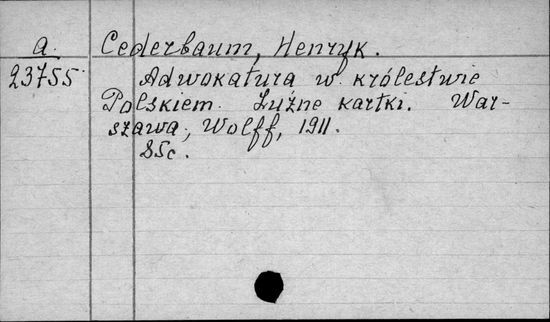 a. Cederbaum, Henryk.
23755. Adwokatura w królestwie
Polskiem. Luźne kartki. War-
szawa, Wolff, 1911.
85c.